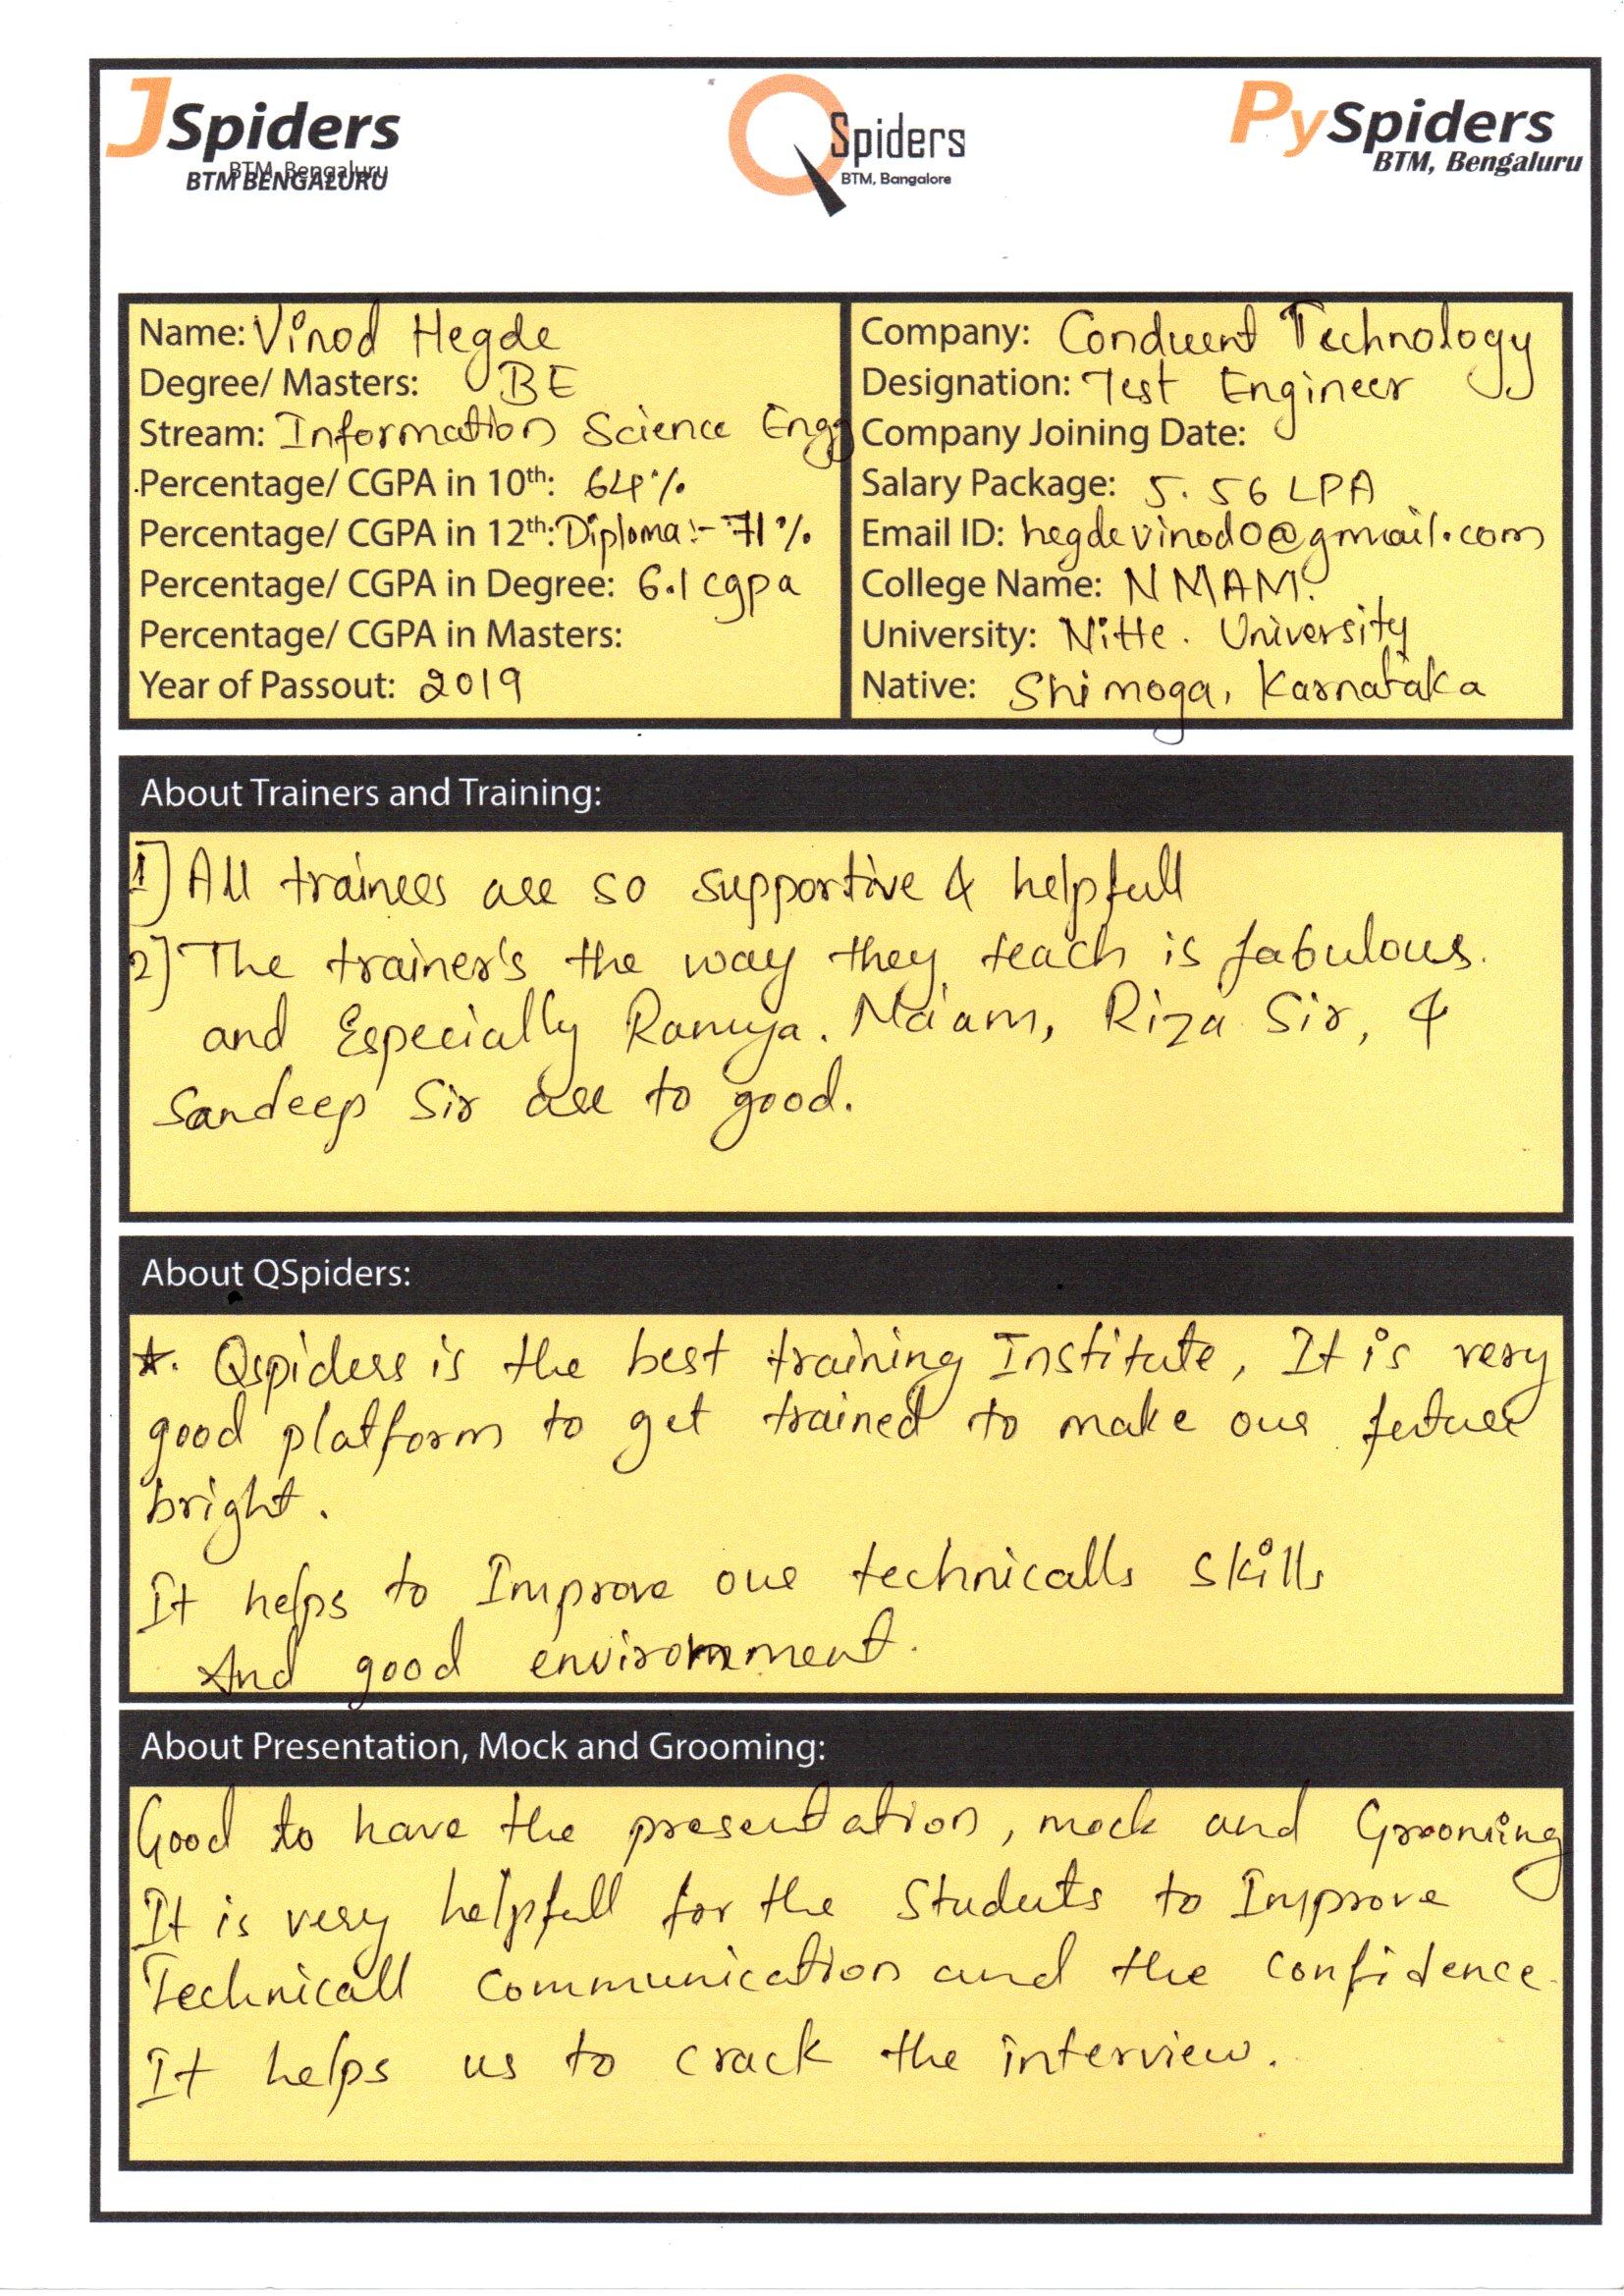 JSpiders
BTM, Bengaluru
BTM BENGALURU
QSpiders
BTM, Bangalore
PySpiders
BTM, Bengaluru
Name: Vinod Hegde
Degree/ Masters: BE
Stream: Information Science Engg
Percentage/ CGPA in 10th: 64%
Percentage/ CGPA in 12th: Diploma:- 71%
Percentage/ CGPA in Degree: 6.1 cgpa
Percentage/ CGPA in Masters:
Year of Passout: 2019
Company: Conduent Technology
Designation: Test Engineer
Company Joining Date:
Salary Package: 5.56 LPA
Email ID: hegdevinod0@gmail.com
College Name: NMAM.
University: Nitte. University
Native: Shimoga, Karnataka
About Trainers and Training:
1] All trainees are so supportive & helpfull
2] The trainer's the way they teach is fabulous.
and Especially Ramya. Ma'am, Riza Sir, &
Sandeep Sir are to good.
About QSpiders:
*. Qspiders is the best training Institute, It is very
good platform to get trained to make our future
bright.
It helps to Improve our technicalls skills
And good environment.
About Presentation, Mock and Grooming:
Good to have the presentation, mock and Grooming
It is very helpfull for the Students to Improve
Technicall communication and the confidence.
It helps us to crack the interview.